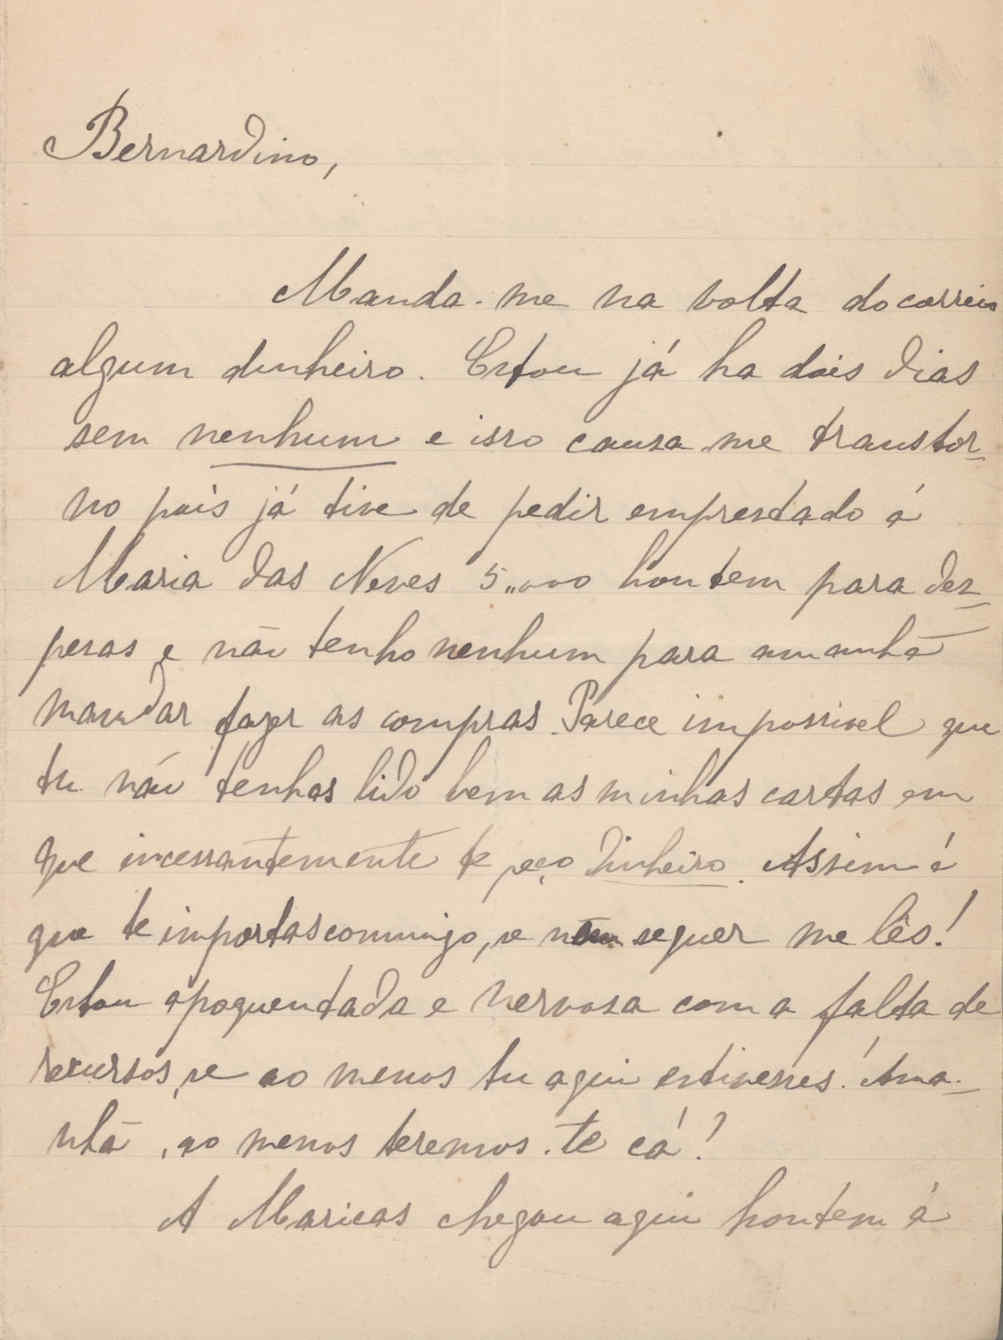 Bernardino,
Manda-me na volta do correio
algum dinheiro. Estou já ha dois dias
sem nenhum e isso causa-me transtor-
no pois já tive de pedir emprestado á
Maria das Neves 5,,000 hontem para des-
pesas e não tenho nenhum para amanhã
mandar fazer as compras. Parece impossivel que
tu não tenhas lido bem as minhas cartas em
que incessantemente te peço dinheiro. Assim é
que te importas commigo, se nem sequer me lês!
Estou apoquentada e nervosa com a falta de
recursos, se ao menos tu aqui estivesses! Ama-
nhã, ao menos teremos-te cá?
A Maricas chegou aqui hontem á